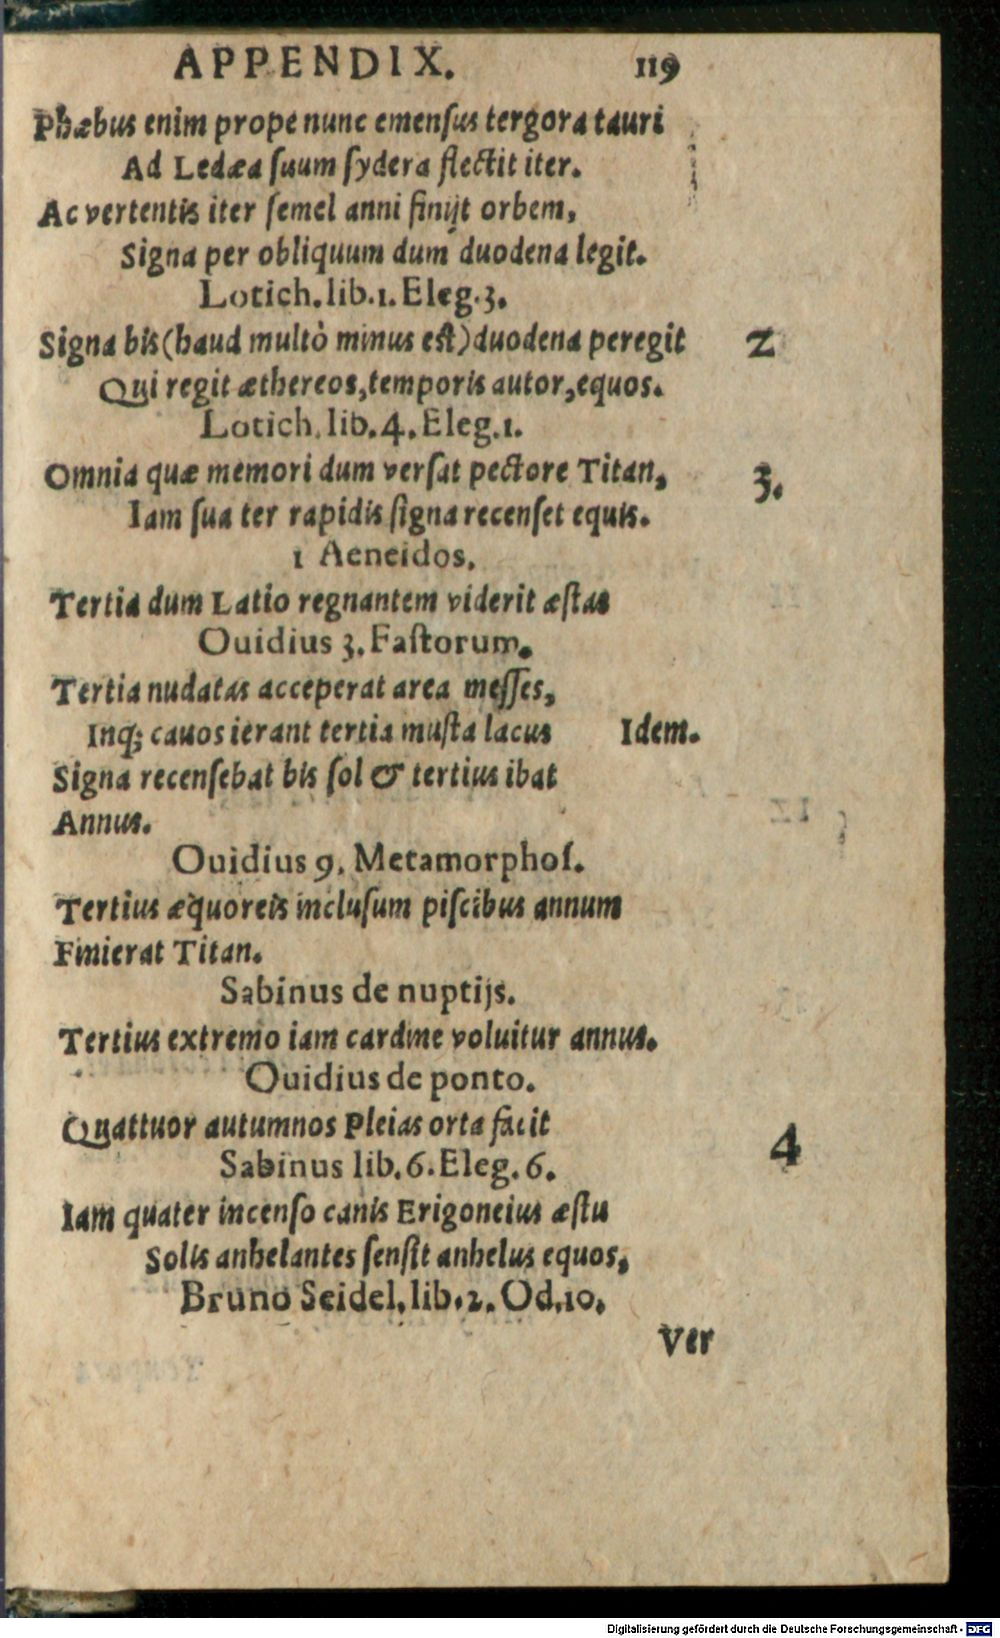 APPENDIX. 119
Phæbus enim prope nunc emenſus tergora tauri
Ad Ledæa ſuum ſydera flectit iter.
Ac vertentis iter ſemel anni finijt orbem,
Signa per obliquum dum duodena legit.
Lotich. lib. 1. Eleg. 3.
Signa bis (haud multò minus eſt) duodena peregit 2
Qui regit æthereos, temporis autor, equos.
Lotich. lib. 4. Eleg. 1.
Omnia quæ memori dum verſat pectore Titan, 3.
Iam ſua ter rapidis ſigna recenſet equis.
1 Aeneidos.
Tertia dum Latio regnantem viderit æſtas
Ouidius 3. Faſtorum.
Tertia nudatas acceperat area meſſes,
Inq; cauos ierant tertia muſta lacus Idem.
Signa recenſebat bis ſol & tertius ibat
Annus.
Ouidius 9. Metamorphoſ.
Tertius æquoreis incluſum piſcibus annum
Finierat Titan.
Sabinus de nuptijs.
Tertius extremo iam cardine voluitur annus.
Ouidius de ponto.
Quattuor autumnos Pleias orta facit
Sabinus lib. 6. Eleg. 6. 4
Iam quater incenſo canis Erigoneius æſtu
Solis anhelantes ſenſit anhelus equos,
Bruno Seidel. lib. 2. Od. 10.
Ver
Digitalisierung gefördert durch die Deutsche Forschungsgemeinschaft - DFG